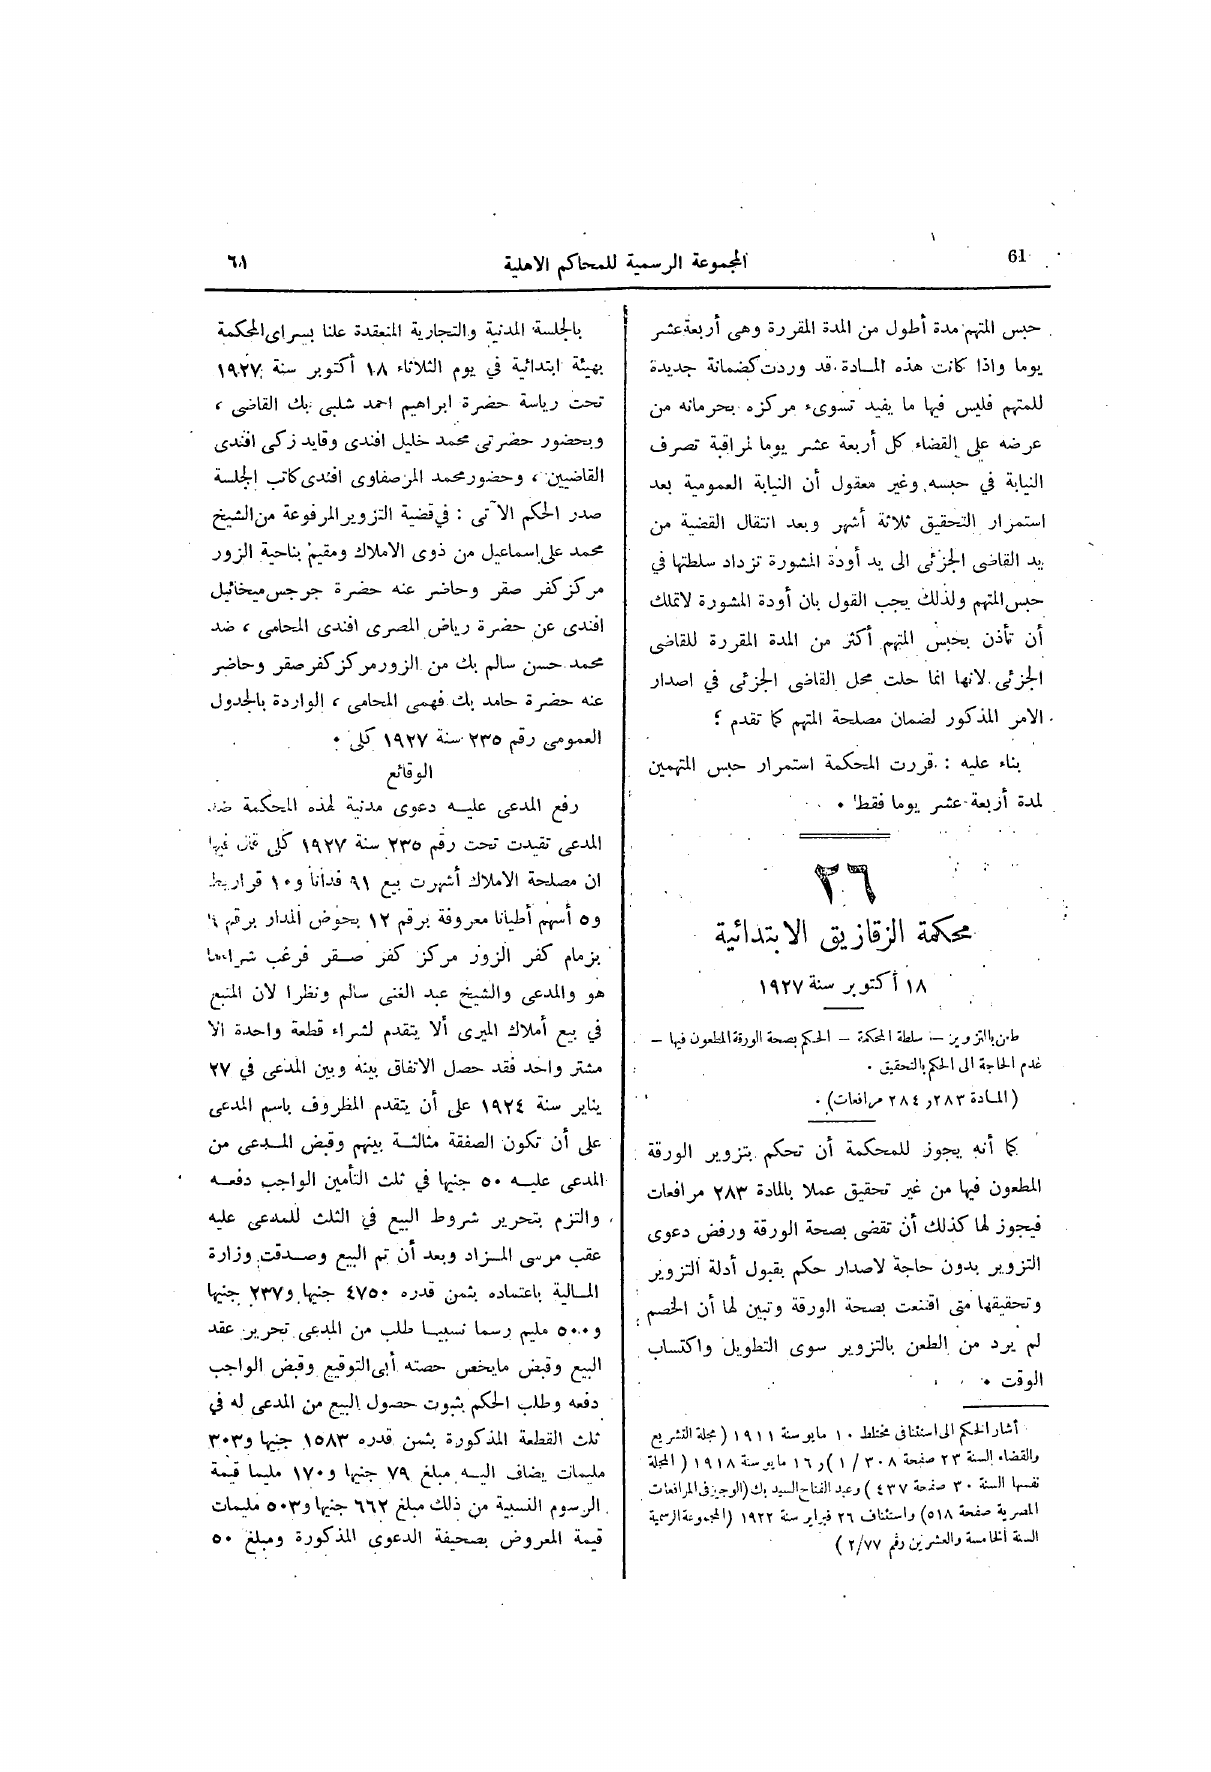 61
المجموعة الرسمية للمحاكم الاهلية
٦١
حبس المتهم مدة أطول من المدة المقررة وهى أربعة عشر
يوما واذا كانت هذه المادة قد وردت كضمانة جديدة
للمتهم فليس فيها ما يفيد تسوىء مركزه بحرمانه من
عرضه على القضاء كل أربعة عشر يوما لمراقبة تصرف
النيابة في حبسه وغير معقول أن النيابة العمومية بعد
استمرار التحقيق ثلاثة أشهر وبعد انتقال القضية من
يد القاضى الجزئى الى يد أودة المشورة تزداد سلطتها في
حبس المتهم ولذلك يجب القول بان أودة المشورة لاتملك
أن تأذن بحبس المتهم أكثر من المدة المقررة للقاضى
الجزئى لانها انما حلت محل القاضى الجزئى في اصدار
الامر المذكور لضمان مصلحة المتهم كما تقدم ؛
بناء عليه : قررت المحكمة استمرار حبس المتهمين
لمدة أربعة عشر يوما فقط .
٢٦
محكمة الزقازيق الابتدائية
١٨ أكتوبر سنة ١٩٢٧
طعن بالتزوير — سلطة المحكمة — الحكم بصحة الورقة المطعون فيها —
عدم الحاجة الى الحكم بالتحقيق .
(المادة ٢٨٣ و ٢٨٤ مرافعات) .
كما أنه يجوز للمحكمة أن تحكم بتزوير الورقة
المطعون فيها من غير تحقيق عملا بالمادة ٢٨٣ مرافعات
فيجوز لها كذلك أن تقضى بصحة الورقة ورفض دعوى
التزوير بدون حاجة لاصدار حكم بقبول أدلة التزوير
وتحقيقها متى اقتنعت بصحة الورقة وتبين لها أن الخصم
لم يرد من الطعن بالتزوير سوى التطويل واكتساب
الوقت .
أشار الحكم الى استئنافى مختلط ١٠ مايو سنة ١٩١١ (مجلة التشريع
والقضاء السنة ٢٣ صفحة ٣٠٨ /١) و ١٦ مايو سنة ١٩١٨ (المجلة
نفسها السنة ٣٠ صفحة ٤٣٧) وعبد الفتاح السيد بك (الوجيز فى المرافعات
المصرية صفحة ٥١٨) واستئناف ٢٦ فبراير سنة ١٩٢٢ (المجموعة الرسمية
السنة الخامسة والعشرين رقم ٢/٧٧)
بالجلسة المدنية والتجارية المنعقدة علنا بسراى المحكمة
بهيئة ابتدائية في يوم الثلاثاء ١٨ أكتوبر سنة ١٩٢٧
تحت رياسة حضرة ابراهيم احمد شلبى بك القاضى ،
وبحضور حضرتى محمد خليل افندى وقايد زكى افندى
القاضيين ، وحضور محمد المرصفاوى افندى كاتب الجلسة
صدر الحكم الآتى : في قضية التزوير المرفوعة من الشيخ
محمد على اسماعيل من ذوى الاملاك ومقيم بناحية الزور
مركز كفر صقر وحاضر عنه حضرة جرجس ميخائيل
افندى عن حضرة رياض المصرى افندى المحامى ، ضد
محمد حسن سالم بك من الزور مركز كفر صقر وحاضر
عنه حضرة حامد بك فهمى المحامى ، الواردة بالجدول
العمومى رقم ٢٣٥ سنة ١٩٢٧ كلى .
الوقائع
رفع المدعى عليه دعوى مدنية لهذه المحكمة ضد
المدعى تقيدت تحت رقم ٢٣٥ سنة ١٩٢٧ كلى قال فيها
ان مصلحة الاملاك أشهرت بيع ٩١ فدانا و١٠ قراريط
و٥ أسهم أطيانا معروفة برقم ١٢ بحوض المدار برقم
بزمام كفر الزور مركز كفر صقر فرغب شراءها
هو والمدعى والشيخ عبد الغنى سالم ونظرا لان المتبع
في بيع أملاك الميرى ألا يتقدم لشراء قطعة واحدة الا
مشتر واحد فقد حصل الاتفاق بينه وبين المدعى في ٢٧
يناير سنة ١٩٢٤ على أن يتقدم المظروف باسم المدعى
على أن تكون الصفقة مثالثة بينهم وقبض المدعى من
المدعى عليه ٥٠ جنيها في ثلث التأمين الواجب دفعه
والتزم بتحرير شروط البيع في الثلث للمدعى عليه
عقب مرسى المزاد وبعد أن تم البيع وصدقت وزارة
المالية باعتماده بثمن قدره ٤٧٥٠ جنيها و٢٣٧ جنيها
و٥٠٠ مليم رسما نسبيا طلب من المدعى تحرير عقد
البيع وقبض مايخص حصته أبى التوقيع وقبض الواجب
دفعه وطلب الحكم بثبوت حصول البيع من المدعى له في
ثلث القطعة المذكورة بثمن قدره ١٥٨٣ جنيها و٣٠٣
مليمات يضاف اليه مبلغ ٧٩ جنيها و١٧٠ مليما قيمة
الرسوم النسبية من ذلك مبلغ ٦٦٢ جنيها و٥٠٣ مليمات
قيمة المعروض بصحيفة الدعوى المذكورة ومبلغ ٥٠